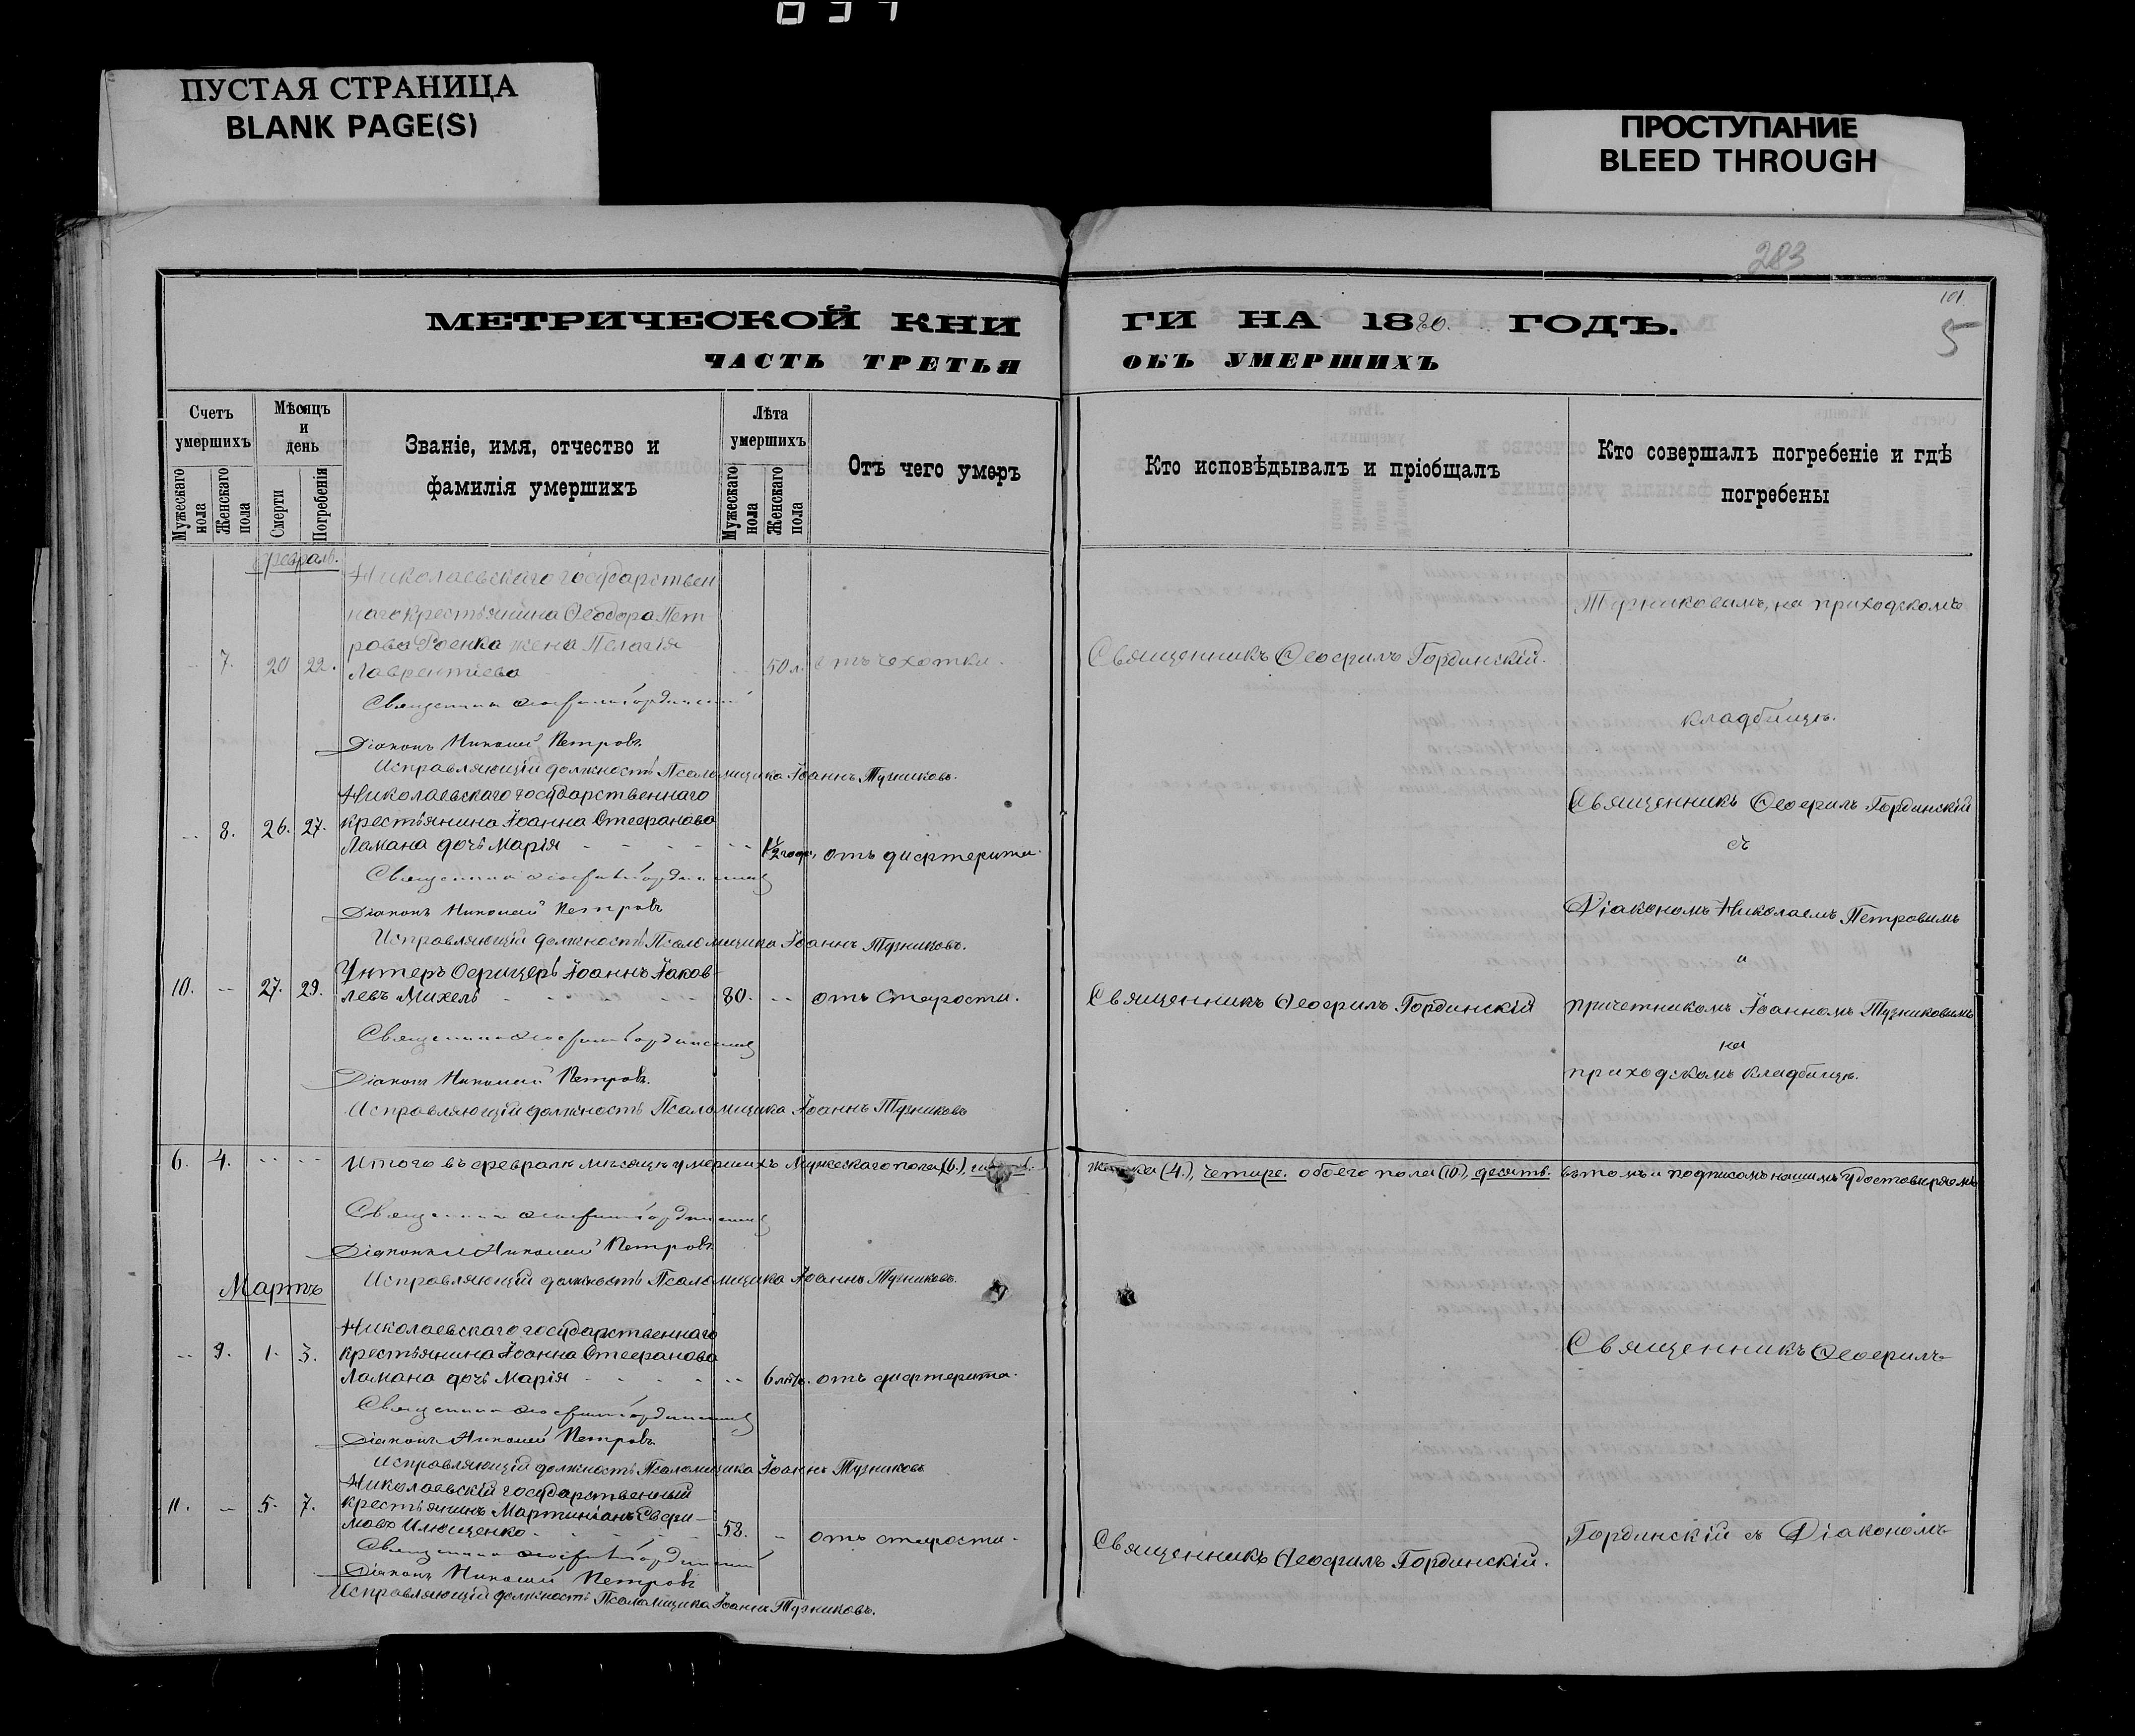 ПУСТАЯ СТРАНИЦА
BLANK PAGE(S)
ПРОСТУПАНИЕ
BLEED THROUGH
283
101
5
МЕТРИЧЕСКОЙ КНИ
ГИ НА 1880. ГОДЪ.
ЧАСТЬ ТРЕТЬЯ
ОБЪ УМЕРШИХЪ
Счетъ умершихъ
Мужескаго пола
Женскаго пола
Мѣсяцъ и день
Смерти
Погребенія
Званіе, имя, отчество и фамилія умершихъ
Лѣта умершихъ
Мужескаго пола
Женскаго пола
Отъ чего умеръ
Кто исповѣдывалъ и пріобщалъ
Кто совершалъ погребеніе и гдѣ погребены
Февраль.
Николаевскаго государствен
наго крестьянина Ѳеодора Пет
рова Роенка жена Пелагія
7. 20 22. Лаврентіева 50 л. отъ чехотки. Священникъ Ѳеофилъ Гординскій.
Тузниковымъ, на приходскомъ
кладбищѣ.
Священникъ Ѳеофилъ Гординскій
Діаконъ Николай Петровъ.
Исправляющій должность Псаломщика Іоаннъ Тузниковъ.
Николаевскаго государственнаго
-- 8. 26. 27. крестьянина Іоанна Стефанова
Ламана дочь Марія - - - - -- 1½ года, отъ дифтерита.
Священникъ Ѳеофилъ Гординскій
съ
Священникъ Ѳеофилъ Гординскій
Діаконъ Николай Петровъ
Діакономъ Николаемъ Петровымъ
Исправляющій должность Псаломщика Іоаннъ Тузниковъ.
и
Унтеръ Офицеръ Іоаннъ Іаков-
10. -- 27. 29. левъ Михель - - - - 80. -- отъ старости. Священникъ Ѳеофилъ Гординскій
причетникомъ Іоанномъ Тузниковымъ
на
приходскомъ кладбищѣ.
Священникъ Ѳеофилъ Гординскій
Діаконъ Николай Петровъ.
Исправляющій должность Псаломщика Іоаннъ Тузниковъ
6. 4. -- -- Итого въ февралѣ мѣсяцѣ умершихъ мужескаго пола (6.),
(4.), четыре. обоего пола (10), десять. въ томъ и подписомъ нашимъ удостовѣряемъ
Священникъ Ѳеофилъ Гординскій
Діаконъ Николай Петровъ
Исправляющій должность Псаломщика Іоаннъ Тузниковъ.
Мартъ
Николаевскаго государственнаго
-- 9. 1. 3. крестьянина Іоанна Стефанова
Ламана дочь Марія - - - - -- 6 лѣтъ. отъ дифтерита.
Священникъ Ѳеофилъ
Священникъ Ѳеофилъ Гординскій
Діаконъ Николай Петровъ
Исправляющій должность Псаломщика Іоаннъ Тузниковъ
Николаевскій государственный
11. -- 5. 7. крестьянинъ Мартиніанъ
мовъ - - - - 58. - отъ старости. Священникъ Ѳеофилъ Гординскій.
Гординскій съ Діакономъ
Священникъ Ѳеофилъ Гординскій
Діаконъ Николай Петровъ
Исправляющій должность Псаломщика Іоаннъ Тузниковъ.